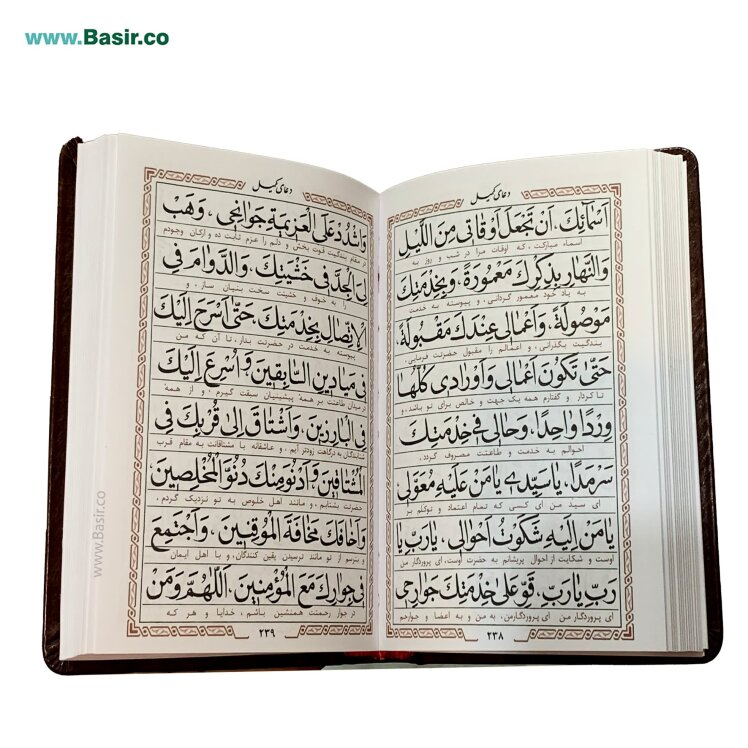 www.Basir.co
دعای کمیل
اَسْمآئِكَ، اَنْ تَجْعَلَ اَوْقاتی مِنَ اللَّيْلِ
اسماء مبارکت، که اوقات مرا در شب و روز به
وَالنَّهارِ بِذِكْرِكَ مَعْمُورَةً، وَبِخِدْمَتِكَ
یاد خود معمور گردانی، و پیوسته به خدمت
مَوْصُولَةً، وَاَعْمالی عِنْدَكَ مَقْبُولَةً،
بندگیت بگذرانی، و اعمالم را مقبول حضرتت فرمایی
حَتّیٰ تَكُونَ اَعْمالی وَاَوْرادی كُلُّها
تا کردار و گفتارم همه یک جهت و خالص برای تو باشد، و
وِرْداً واحِداً، وَحالی فی خِدْمَتِكَ
احوالم به خدمت و طاعتت مصروف گردد.
سَرْمَداً، یا سَیِّدی یا مَنْ عَلَيْهِ مُعَوَّلی
ای سید من ای کسی که تمام اعتماد و توکلم بر
یا مَنْ اِلَيْهِ شَكَوْتُ اَحْوالی، یا رَبِّ یا
اوست و شکایت از احوال پریشانم به حضرت اوست، ای پروردگار من
رَبِّ یا رَبِّ، قَوِّ عَلیٰ خِدْمَتِكَ جَوارِحی
ای پروردگار من ای پروردگارمن، به من و به اعضا و جوارحم
۲۳۸
دعای کمیل
وَاشْدُدْ عَلَی الْعَزیمَةِ جَوانِحی، وَهَبْ
مقام بندگیت قوت بخش و دلم را عزم ثابت ده و ارکان وجودم
لِیَ الْجِدَّ فی خَشْيَتِكَ، وَالدَّوامَ فِی
به خوف و خشیتت سخت بنیان ساز، و
الْاِتِّصالِ بِخِدْمَتِكَ، حَتّیٰ اَسْرَحَ اِلَيْكَ
پیوسته به خدمت در حضرتت بدار، تا آن که من
فی مَیادینِ السّابِقینَ، وَاُسْرِعَ اِلَيْكَ
در میدان طاعتت بر همه پیشینیان سبقت گیرم، و از همه
فِی الْبارِزینَ، وَاَشْتاقَ اِلیٰ قُرْبِكَ فِی
شتابندگان به درگاهت زودتر آیم، و عاشقانه با مشتاقانت به مقام قرب
الْمُشْتاقینَ، وَاَدْنُوَ مِنْكَ دُنُوَّ الْمُخْلِصینَ،
حضرتت بشتابم، و مانند اهل خلوص به تو نزدیک گردم،
وَاَخافَكَ مَخافَةَ الْمُوقِنینَ، وَاَجْتَمِعَ
و بترسم از تو مانند ترسیدن یقین کنندگان، و با اهل ایمان
فی جِوارِكَ مَعَ الْمُؤْمِنینَ، اَللّهُمَّ وَمَنْ
در جوار رحمتت همنشین باشم، خدایا و هر که
۲۳۹
www.Basir.co